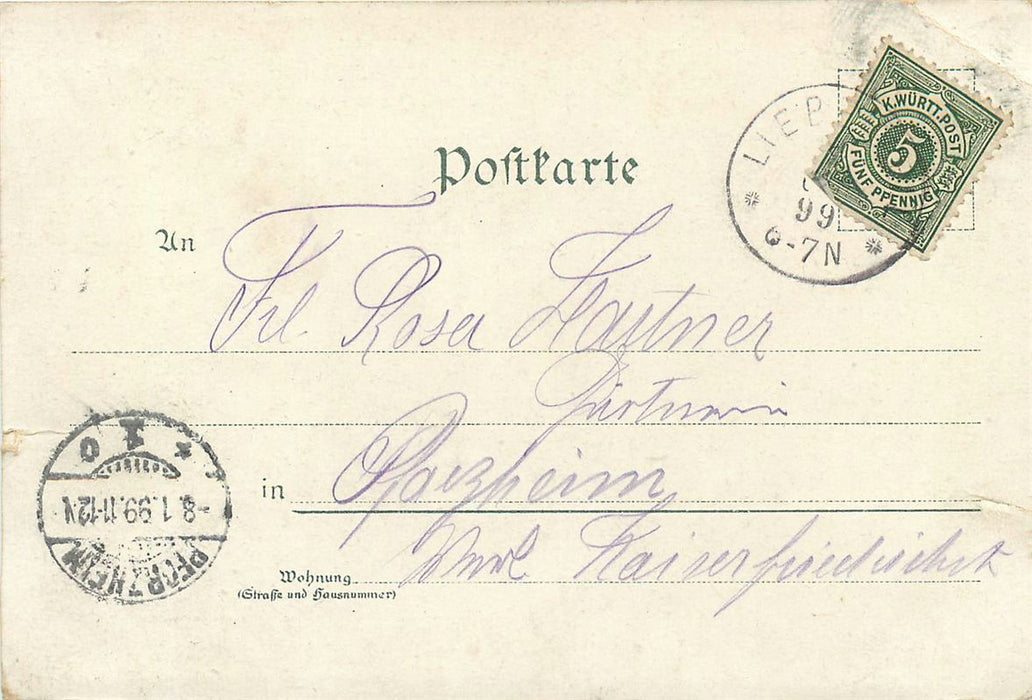 Postkarte
K. WÜRTT. POST
5
FÜNF PFENNIG
LIEP
99
6-7N
An
Frl. Rosa Hautner
in Pforzheim
Wohnung
(Straße und Hausnummer)
Kaiserfriedrichst
PFORZHEIM
-8.1.99.11-12N.